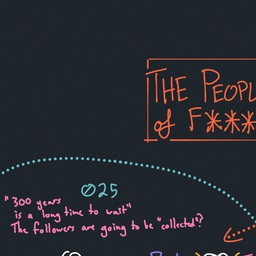 THE PEOPL
of F***
025
"300 years
is a long time to wait"
The followers are going to be "collected"?